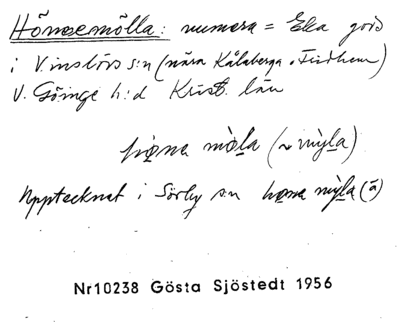 Hönsemölla: numera = Eka gård
i Vinslövs s:n (nära Kålaberga o. Tindhem)
V. Göinge h:d Krist. län
høna mòla (~ mỳla)
Upptecknat i Sörby s:n høna mỳla (ā)
Nr10238 Gösta Sjöstedt 1956